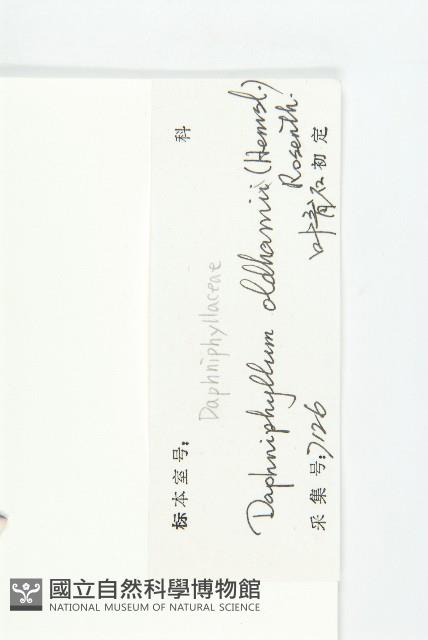 标本室号: 科
Daphniphyllaceae
Daphniphyllum oldhamii (Hemsl.)
Rosenth.
采集号: 7126 叶育石 初定
國立自然科學博物館
NATIONAL MUSEUM OF NATURAL SCIENCE